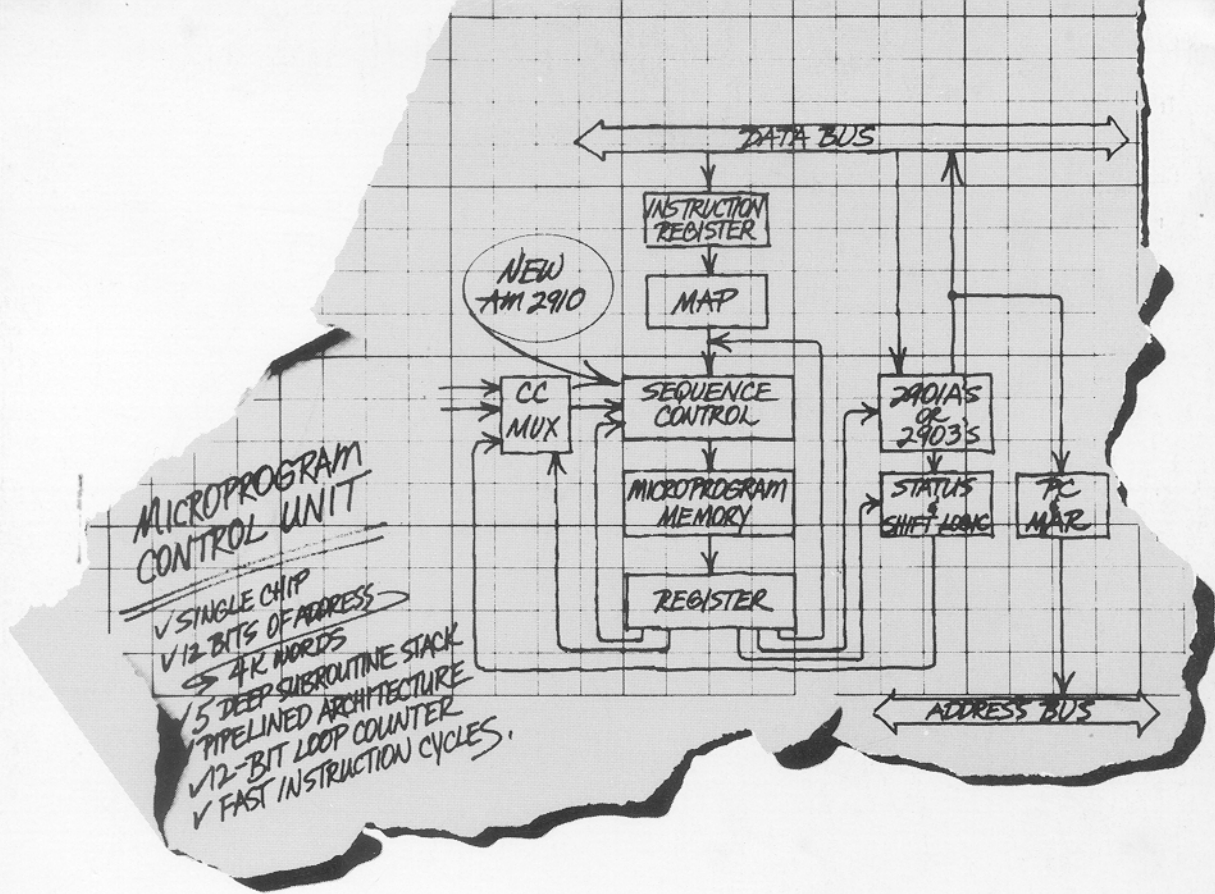 DATA BUS
INSTRUCTION
REGISTER
NEW
AM 2910
MAP
CC
MUX
SEQUENCE
CONTROL
2901A'S
OR
2903'S
MICROPROGRAM
MEMORY
STATUS
&
SHIFT LOGIC
PC
&
MAR
REGISTER
ADDRESS BUS
MICROPROGRAM
CONTROL UNIT
✓ SINGLE CHIP
✓ 12 BITS OF ADDRESS
4K WORDS
✓ 5 DEEP SUBROUTINE STACK
✓ PIPELINED ARCHITECTURE
✓ 12-BIT LOOP COUNTER
✓ FAST INSTRUCTION CYCLES.